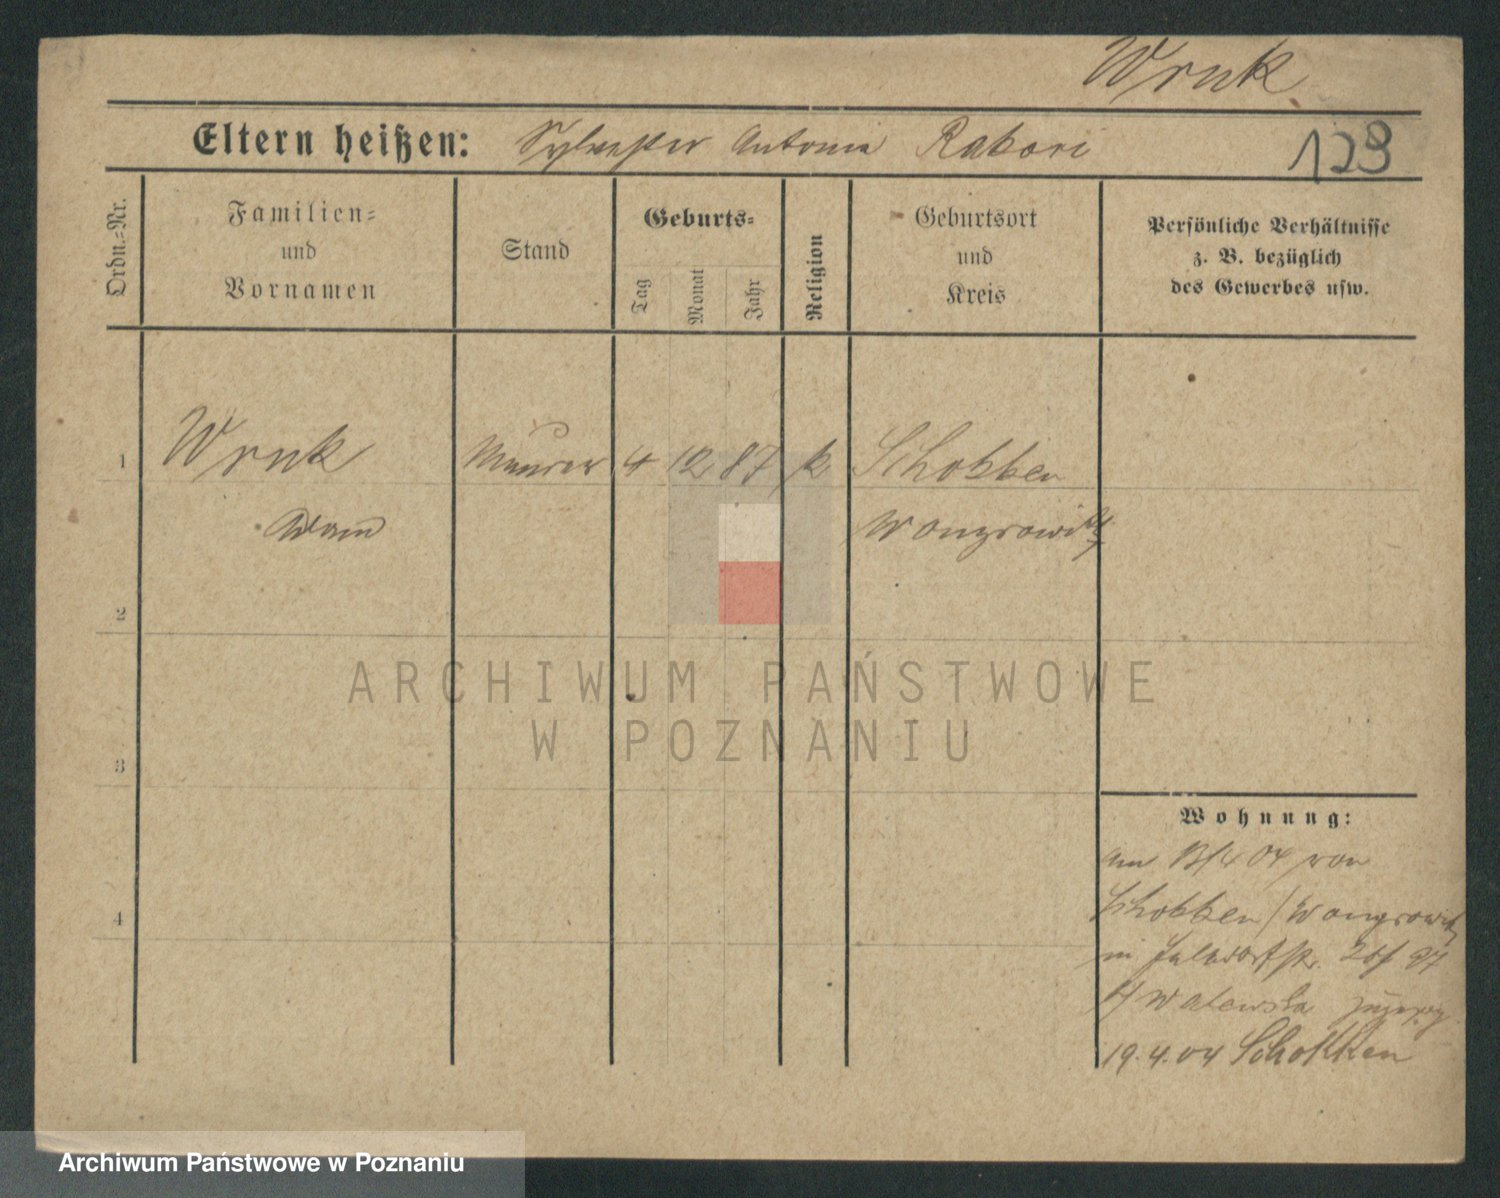 Wruk
Eltern heißen: Sylvester Antonia Rakori
129
Ordn.=Nr.
Familien=
und
Vornamen
Stand
Geburts=
Tag
Monat
Jahr
Religion
Geburtsort
und
Kreis
Persönliche Verhältnisse
z. B. bezüglich
des Gewerbes usw.
1 Wruk Maurer 4 12 87 k Schokken
Adam Wongrowitz
2
3
4
ARCHIWUM PAŃSTWOWE
W POZNANIU
Wohnung:
am 13/4 04 von
Schokken / Wongrowitz
in
b/ Walewska
19.4.04 Schokken
Archiwum Państwowe w Poznaniu